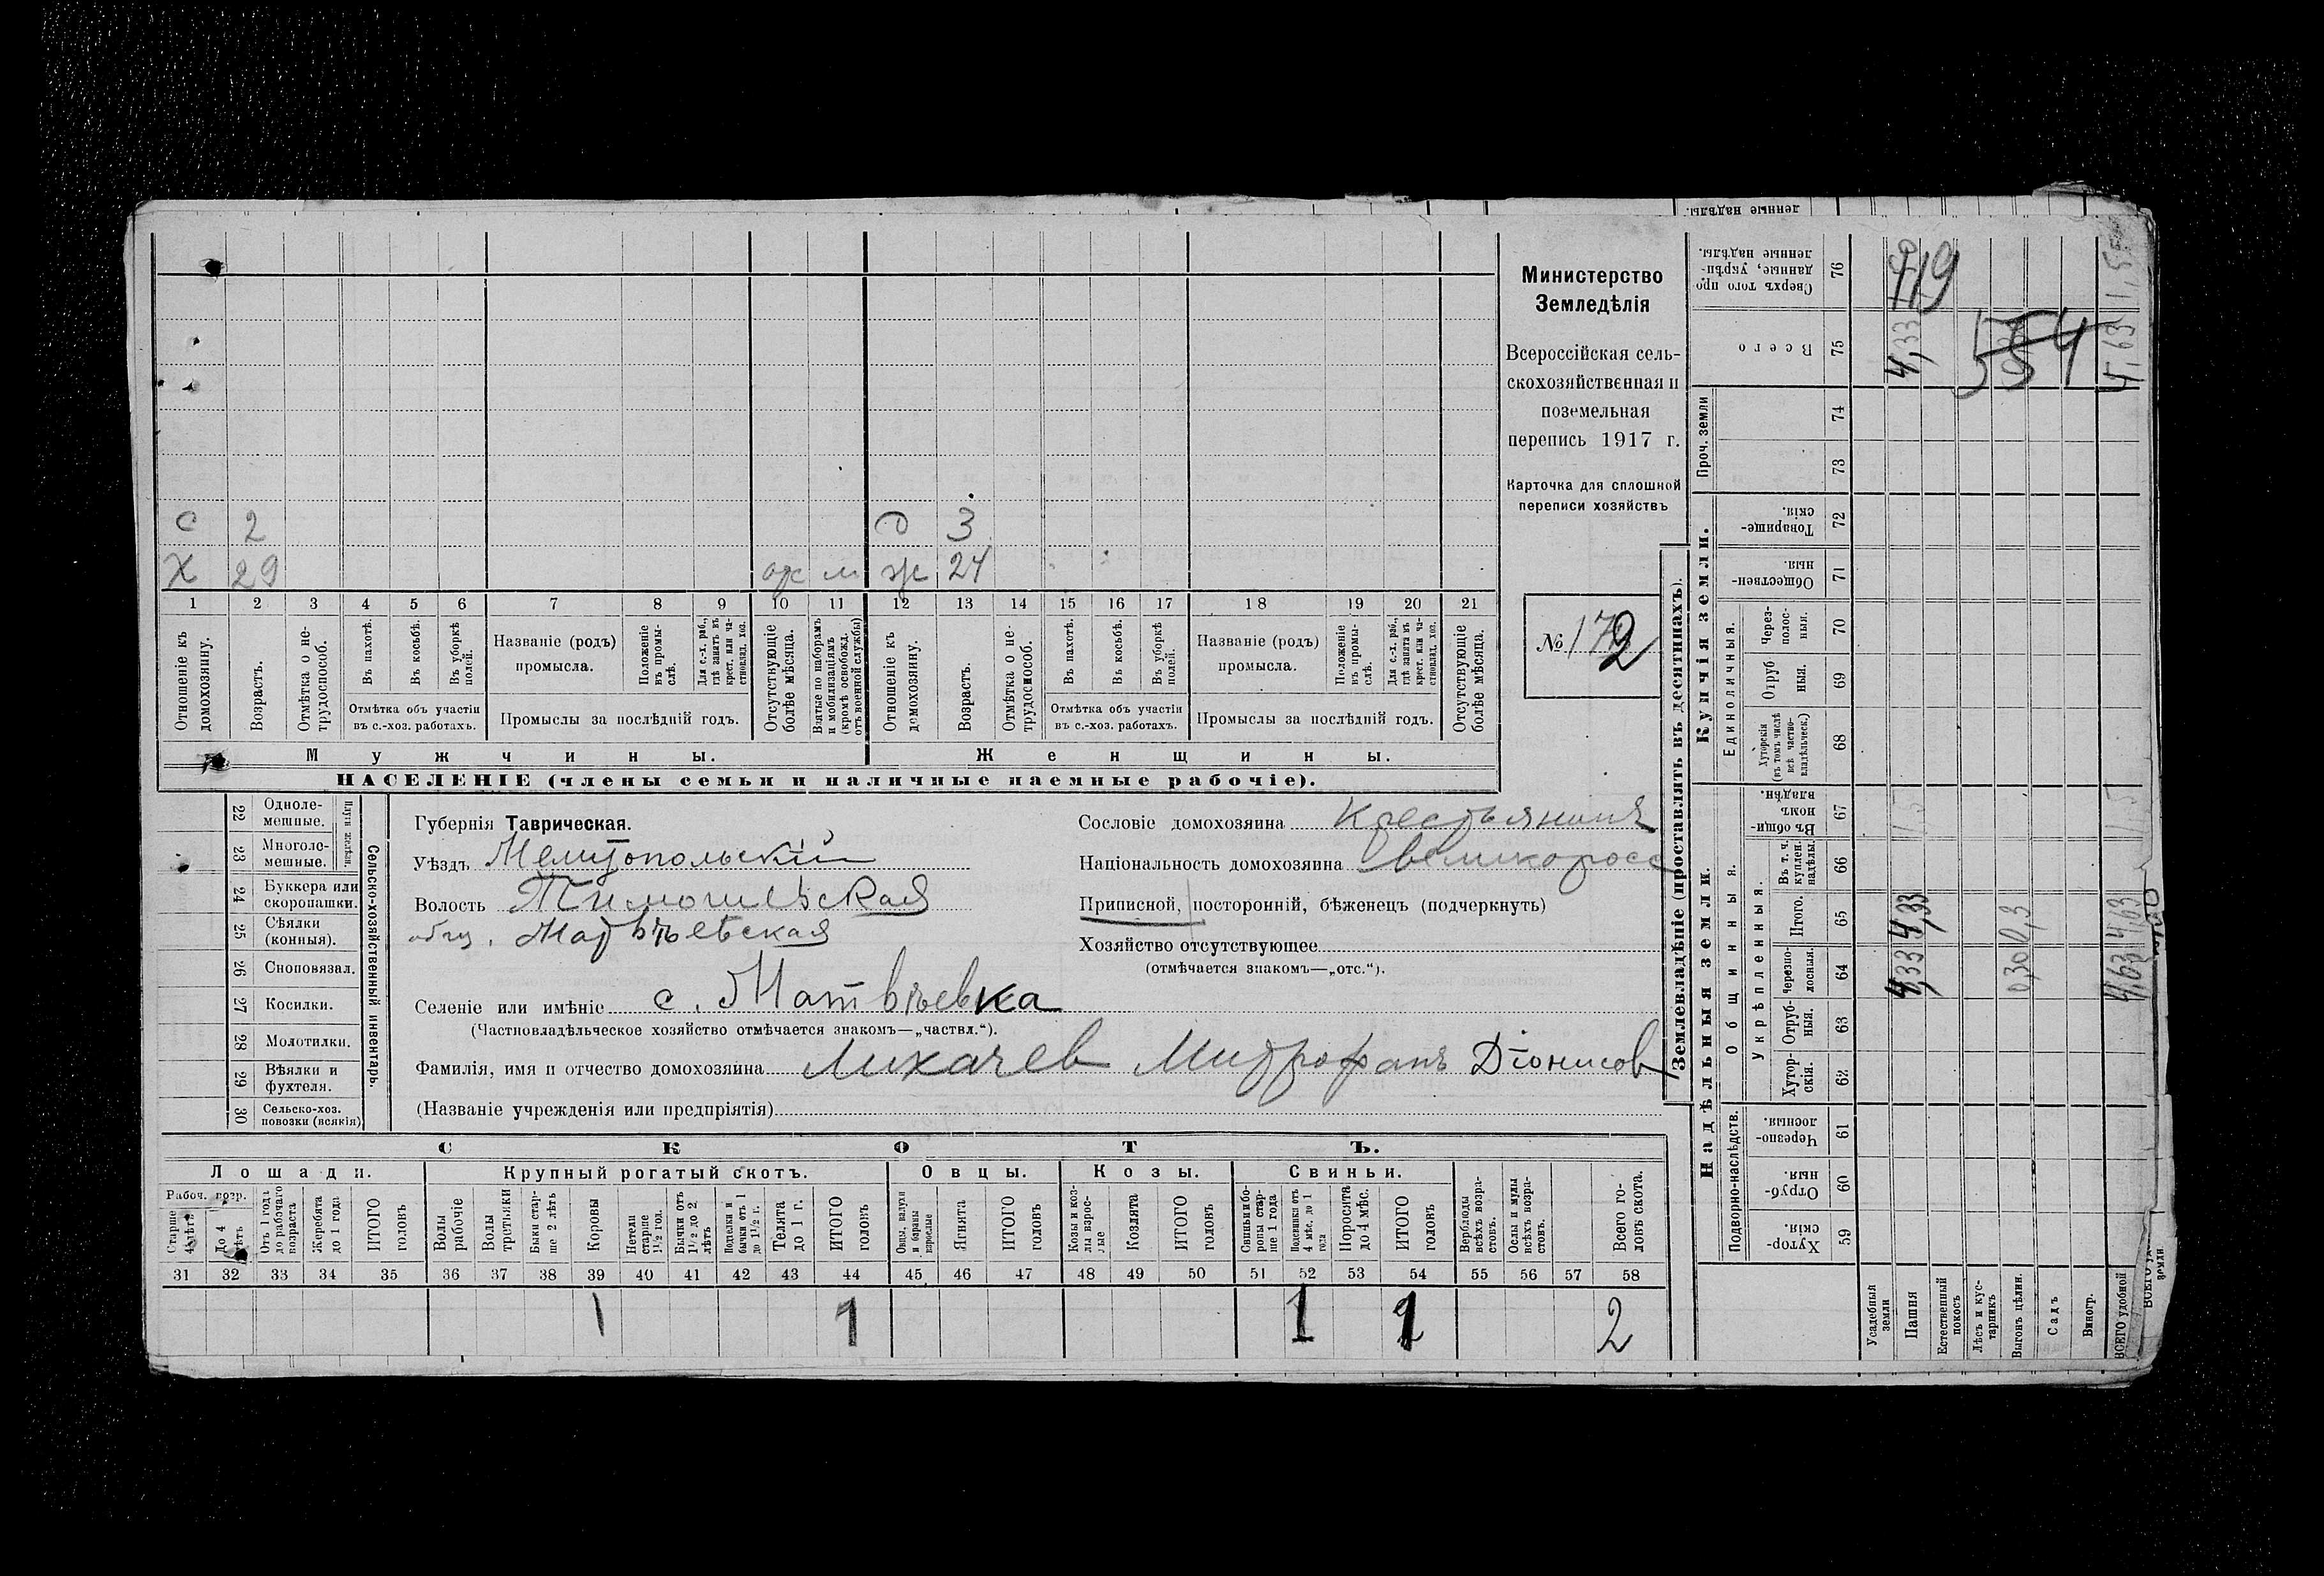 с 2 д 3
х 29 ж 24
1 2 3 4 5 6 7 8 9 10 11 12 13 14 15 16 17 18 19 20 21
Отношеніе къ домохозяину.
Возрастъ.
Отмѣтка о не-
трудоспособ.
Въ пахотѣ.
Въ косьбѣ.
Въ уборкѣ полей.
Отмѣтка объ участіи
въ с.-хоз. работахъ.
Названіе (родъ)
промысла.
Положеніе въ промы-
слѣ.
Для с.-х. раб.,
гдѣ занятъ въ
крест. или ча-
стновлад. хоз.
Промыслы за послѣдній годъ.
Отсутствующіе
болѣе мѣсяца.
Взятые по наборамъ
и мобилизаціямъ
(кромѣ освобожд.
отъ военной службы)
Отношеніе къ домохозяину.
Возрастъ.
Отмѣтка о не-
трудоспособ.
Въ пахотѣ.
Въ косьбѣ.
Въ уборкѣ полей.
Отмѣтка объ участіи
въ с.-хоз. работахъ.
Названіе (родъ)
промысла.
Положеніе въ промы-
слѣ.
Для с.-х. раб.,
гдѣ занята въ
крест. или ча-
стновлад. хоз.
Промыслы за послѣдній годъ.
Отсутствующіе
болѣе мѣсяца.
Мужчины. Женщины.
НАСЕЛЕНІЕ (члены семьи и наличные наемные рабочіе).
Министерство
Земледѣлія
Всероссійская сель-
скохозяйственная и
поземельная
перепись 1917 г.
Карточка для сплошной
переписи хозяйствъ
№ 172
22 Одноле-
мешные.
23 Многоле-
мешные.
24 Буккера или
скоропашки.
25 Сѣялки
(конныя).
26 Сноповязал.
27 Косилки.
28 Молотилки.
29 Вѣялки и
фухтеля.
30 Сельско-хоз.
повозки (всякія)
Сельско-хозяйственный инвентарь.
Губернія Таврическая.
Уѣздъ Мелитопольскій
Волость Тимошевская
общ. Матвѣевская
Селеніе или имѣніе с. Матвѣевка
(Частновладѣльческое хозяйство отмѣчается знакомъ—„частвл.“).
Фамилія, имя и отчество домохозяина Лихачев Митрофанъ Діонисов
(Названіе учрежденія или предпріятія)
Сословіе домохозяина Крестьянинъ
Національность домохозяина Великоросс
Приписной, посторонній, бѣженецъ (подчеркнуть)
Хозяйство отсутствующее
(отмѣчается знакомъ—„отс.“).
СКОТЪ.
Лошади. Крупный рогатый скотъ. Овцы. Козы. Свиньи.
Рабоч. возр.
Старше 4 лѣтъ
До 4 лѣтъ
Отъ 1 года
до рабочаго
возраста
Жеребята
до 1 года
ИТОГО
головъ
Волы
рабочіе
Волы
третьяки
Быки стар-
ше 2 лѣтъ
Коровы
Нетели
старше
1½ год.
Бычки отъ
1½ до 2
лѣтъ
Подтелки и
бычки отъ 1
до 1½ г.
Телята
до 1 г.
ИТОГО
головъ
Овцы, валухи
и бараны
взрослые
Ягнята
ИТОГО
головъ
Козы и коз-
лы взрос-
лые
Козлята
ИТОГО
головъ
Свиньи бо-
ровы стар-
ше 1 года
Подсвинки отъ
4 мѣс. до 1
года
Поросята
до 4 мѣс.
ИТОГО
головъ
Верблюды
всѣхъ возра-
стовъ.
Ослы и мулы
всѣхъ возра-
стовъ.
Всего го-
ловъ скота.
31 32 33 34 35 36 37 38 39 40 41 42 43 44 45 46 47 48 49 50 51 52 53 54 55 56 57 58
1 1 1 2
Землевладѣніе (проставлять въ десятинахъ).
Надѣльныя земли.
Купчія земли.
Проч. земли
Подворно-наслѣдств.
Общинныя.
Укрѣпленныя.
Единоличныя.
Хутор-
скія. 59
Отруб-
ныя. 60
Черезпо-
лосныя. 61
Хутор-
скія. 62
Отруб-
ныя. 63
Черезпо-
лосныя. 64
Итого. 65
Въ т. ч.
куплен.
надѣлы. 66
Въ общи-
номъ
владѣн. 67
Хуторскія
(въ томъ числѣ
всѣ частно-
владѣльческ.) 68
Отруб
ныя. 69
Через-
полос-
ныя. 70
Обществен-
ныя. 71
Товарище-
скія. 72
73
74
Всего 75
Сверхъ того про
данные, укрѣп-
ленные надѣлы. 76
ленные надѣлы.
Усадебныя
земли
Пашня
Естественный
покосъ
Лѣсъ и кус-
тарникъ
Выгонъ цѣлин.
Садъ
Виногр.
ВСЕГО удобной
земли.
4,33
4,33
0,30
0,3
4,63
4,63
1,5
119
554